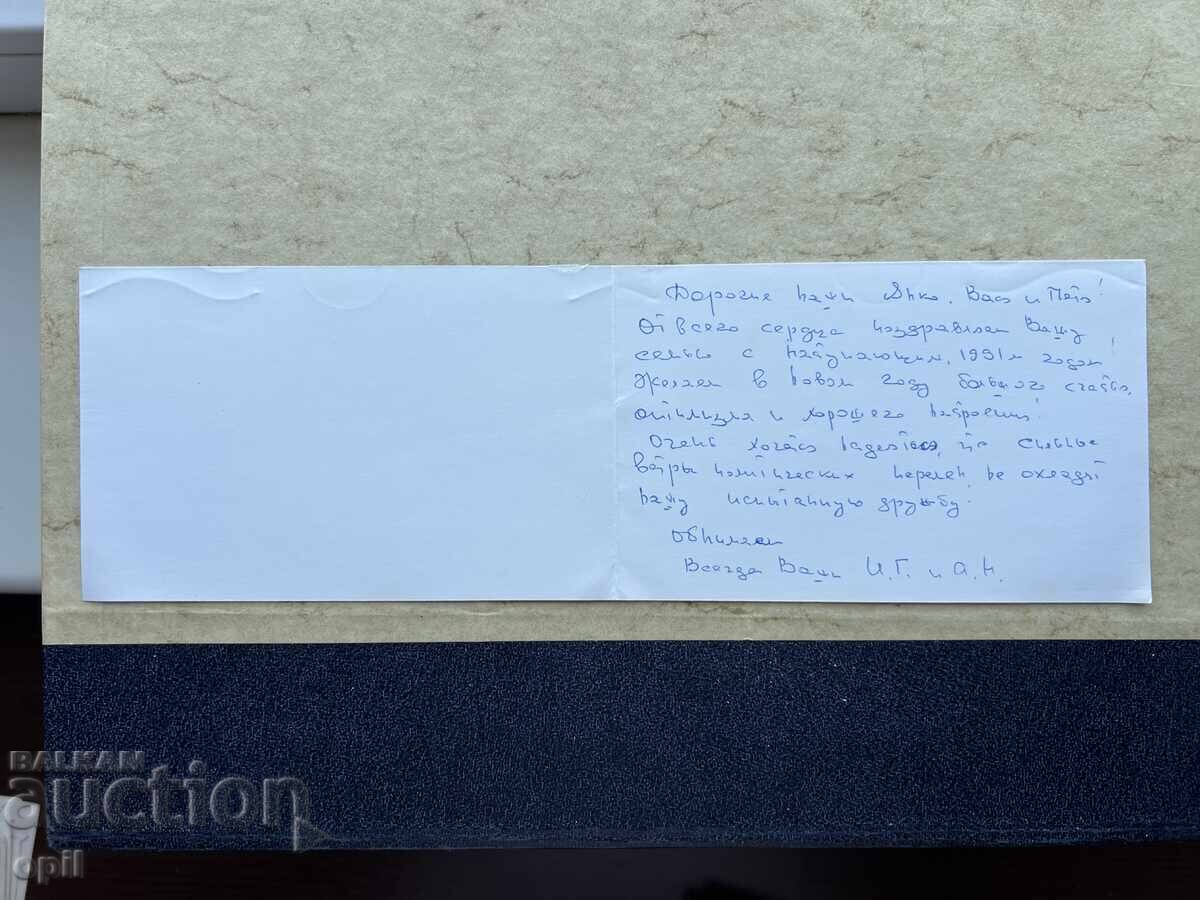 Дорогие наши Янко, Вася и Петя!
От всего сердца поздравляем Вашу
семью с наступающим, 1991м годом!
Желаем в новом году большого счастья,
оптимизма и хорошего настроения!
Очень хочется надеяться, что сильные
ветры политических перемен не охладят
нашу испытанную дружбу.
Обнимаем
Всегда Ваши И.Г. и А.Н.
BALKAN
auction
opil